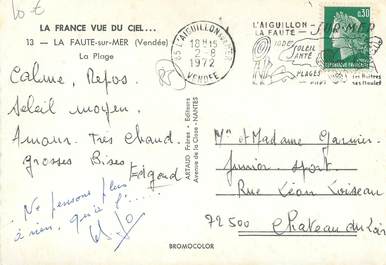 10 €
LA FRANCE VUE DU CIEL...
13 - LA FAUTE-sur-MER (Vendée)
La Plage
85 L'AIGUILLON S/MER
18H15
2-8
1972
VENDEE
L'AIGUILLON
LA FAUTE - SUR-MER
IODE
SOLEIL
SANTÉ
PLAGES
0,30
REPUBLIQUE FRANCAISE
85
Calme, Repos.
Soleil moyen.
Amour très chaud.
Grosses Bises
Ne pensons plus
à rien, qu'à
ARTAUD Frères - Editeurs
Avenue de la Close - NANTES
Mr et Madame Garnier
Junior-Sport
Rue Léon Loiseau
72500 Chateau du Loir
BROMOCOLOR